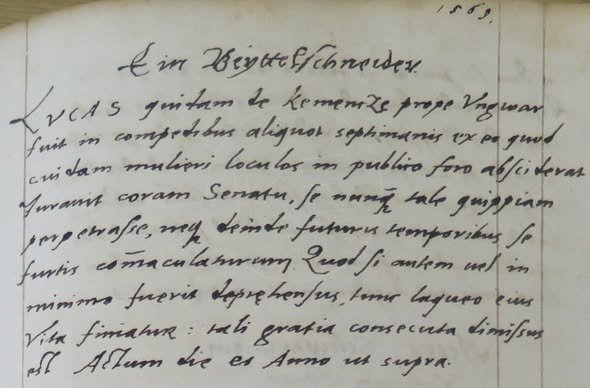 1569.
Ein Beyttelschneider.
LVCAS quidam de Kemencze prope Vngwar
fuit in compedibus aliquot septimanis ex eo quod
cuidam mulieri loculos in publico foro absciderat
Iurauit coram Senatu, se nunq̃ tale quippiam
perpetrasse, neq deinde futuris temporibus se
furtis com̃aculaturum. Quod si autem uel in
minimo fuerit deprehensus, tunc laqueo eius
Vita finiatur: tali gratia consecuta dimissus
est Actum die et Anno ut supra.